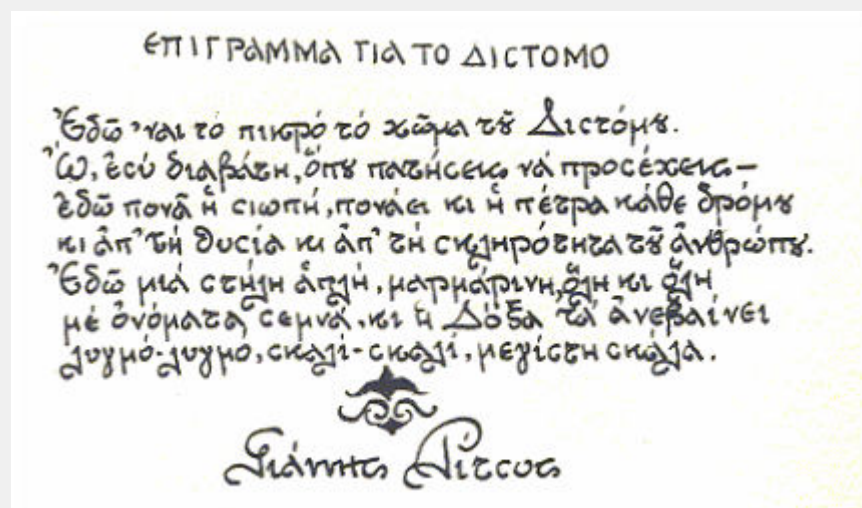 ΕΠΙΓΡΑΜΜΑ ΓΙΑ ΤΟ ΔΙΣΤΟΜΟ
Ἐδῶ 'ναι τὸ πικρὸ τὸ χῶμα τοῦ Διστόμου.
Ὤ, ἐσὺ διαβάτη, ὅπου πατήσεις νὰ προσέχεις –
ἐδῶ πονᾶ ἡ σιωπή, πονάει κι ἡ πέτρα κάθε δρόμου
κι ἀπ' τὴ θυσία κι ἀπ' τὴ σκληρότητα τοῦ ἀνθρώπου.
Ἐδῶ μιὰ στήλη ἁπλή, μαρμάρινη, ὅλη κι ὅλη
μὲ ὀνόματα σεμνά, κι ἡ Δόξα τὰ ἀνεβαίνει
λυγμό-λυγμό, σκαλί-σκαλί, μεγίστη σκάλα.
Γιάννης Ρίτσος